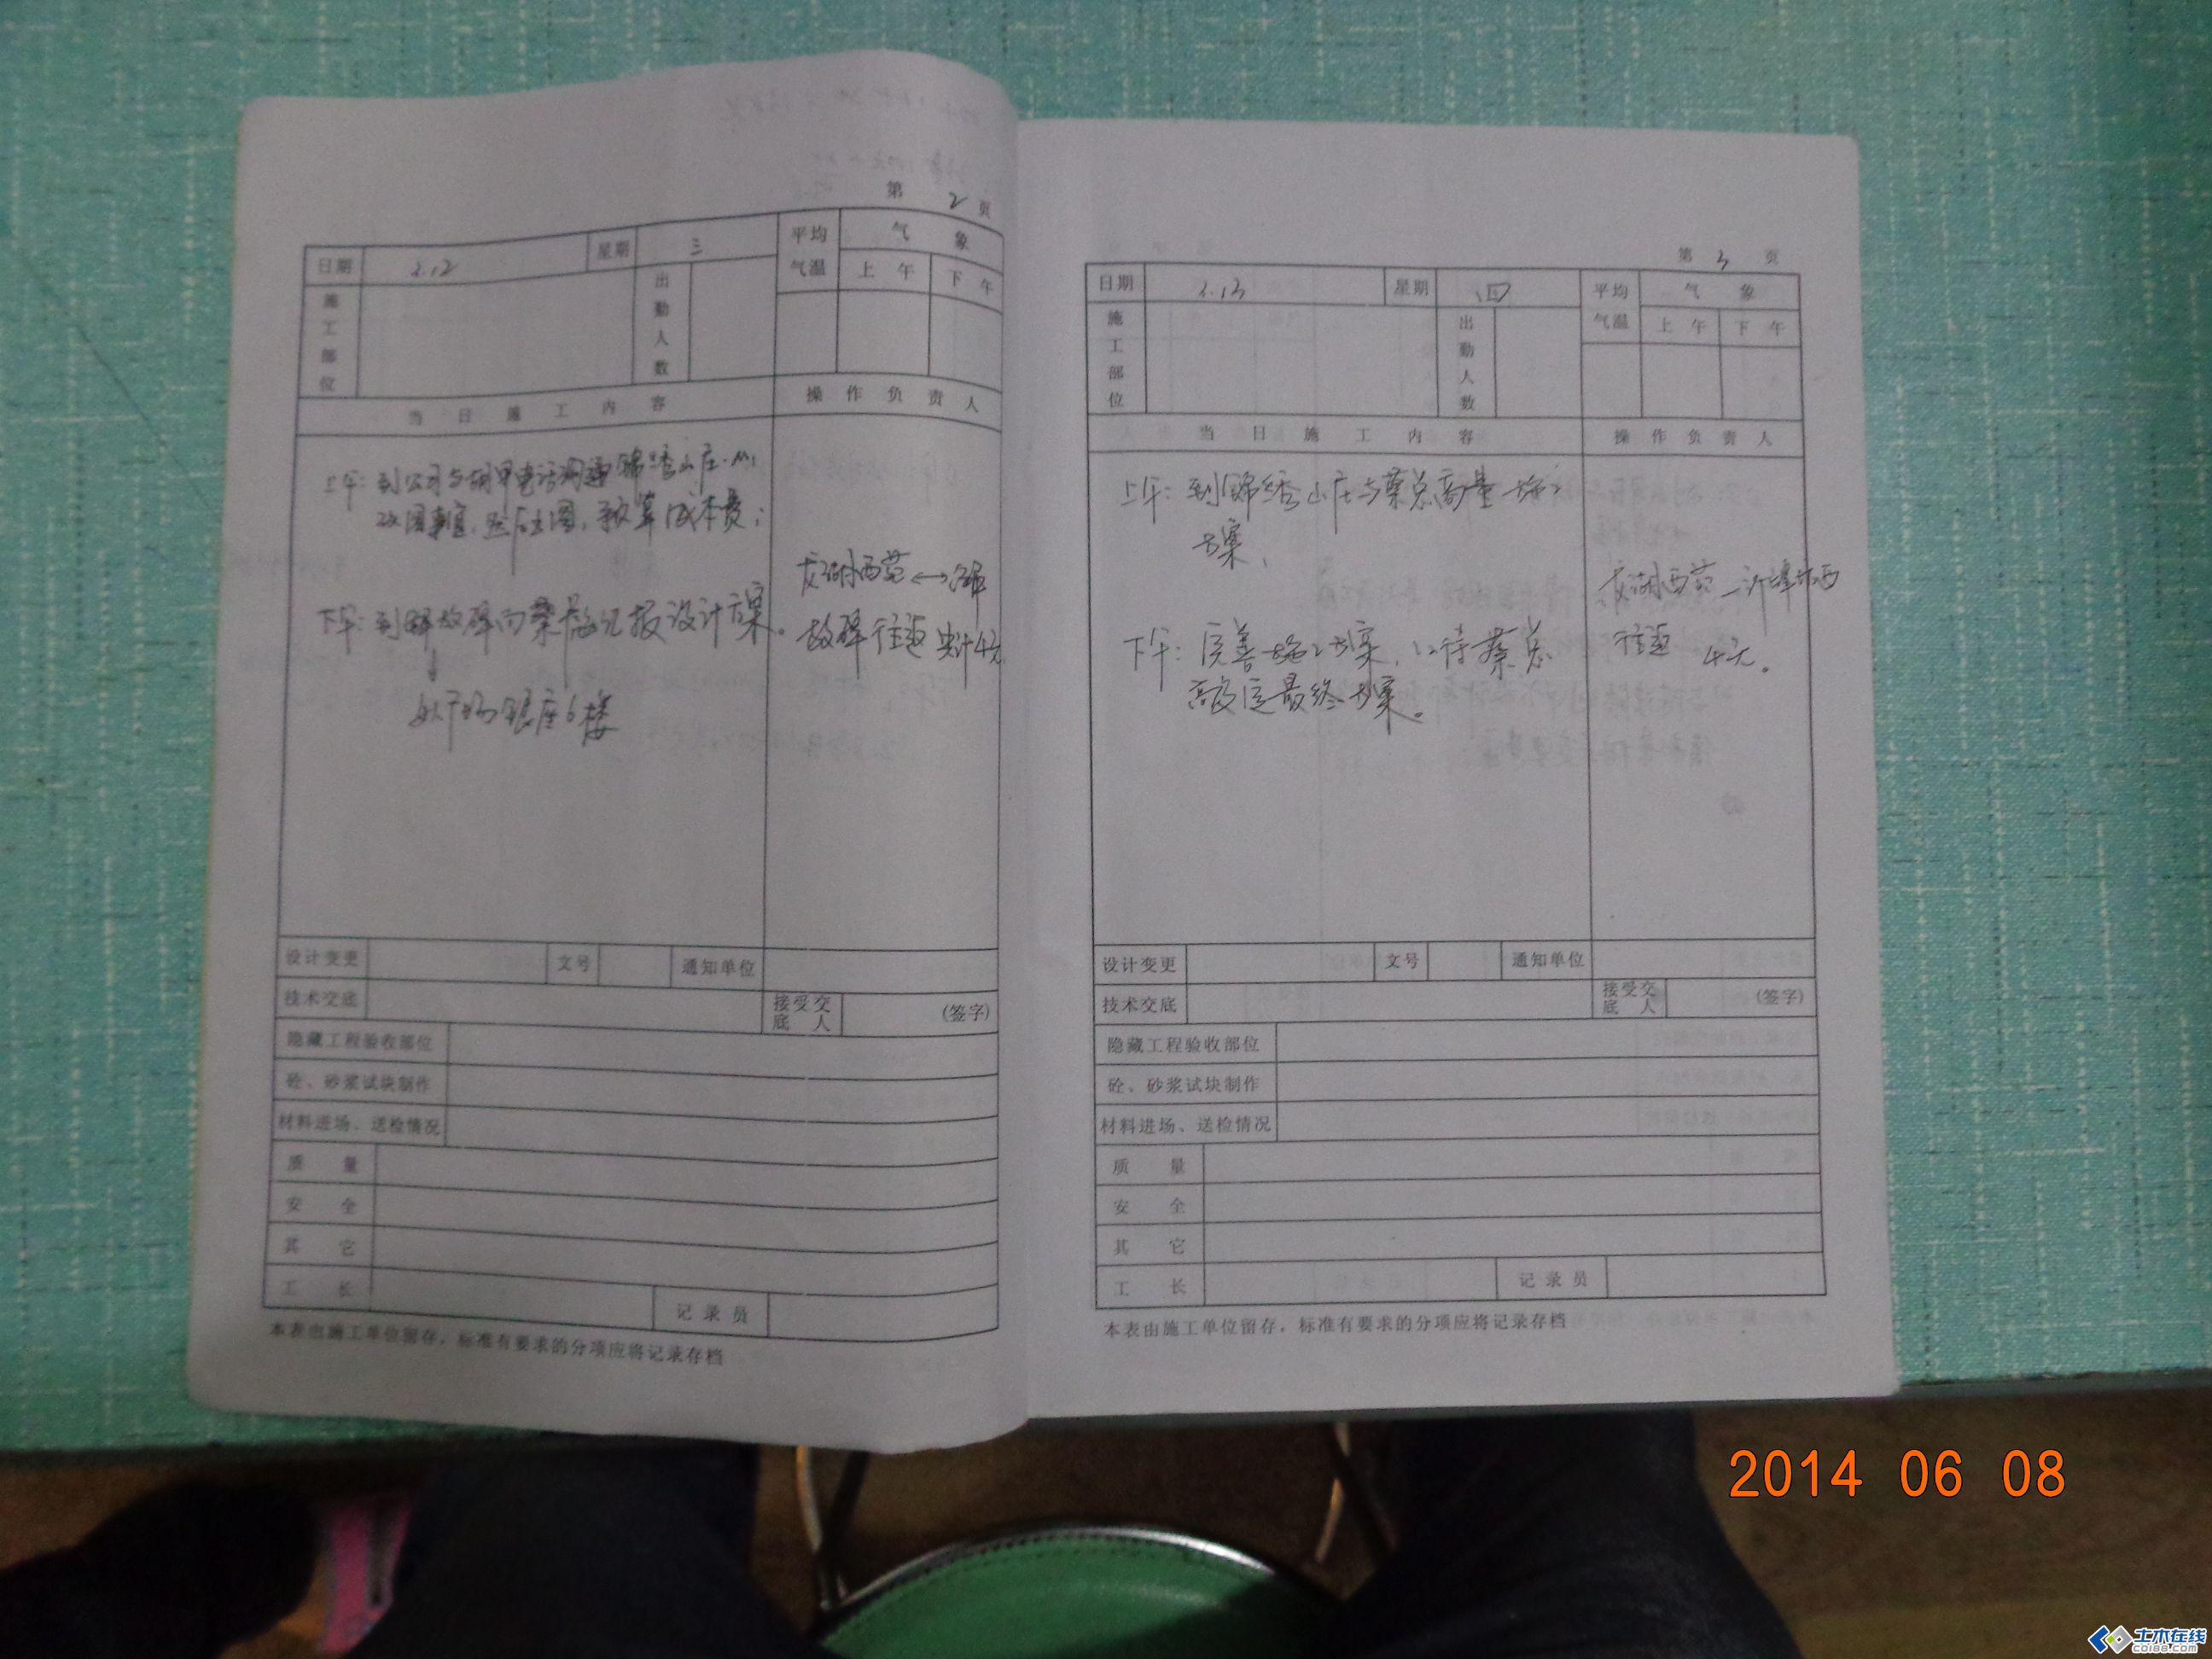 第 2 页
日期 2.12 星期 三 平均气温 气 象
上 午 下 午
施工部位 出勤人数
当 日 施 工 内 容 操 作 负 责 人
上午: 到公司与 电话沟通锦绣山庄
改图事宜, 然后出图, 预算成本费;
下午: 到 向 汇报设计方案。
银座6楼
龙湖西苑 ↔
往返 共计4元
设计变更 文号 通知单位
技术交底 接受交底人 (签字)
隐藏工程验收部位
砼、砂浆试块制作
材料进场、送检情况
质 量
安 全
其 它
工 长 记 录 员
本表由施工单位留存，标准有要求的分项应将记录存档
第 3 页
日期 2.13 星期 四 平均气温 气 象
上 午 下 午
施工部位 出勤人数
当 日 施 工 内 容 操 作 负 责 人
上午: 到锦绣山庄与蔡总商量施工
方案,
下午: 完善施工方案, 以待蔡总
商设定最终方案。
龙湖西苑 —
往返 4元。
设计变更 文号 通知单位
技术交底 接受交底人 (签字)
隐藏工程验收部位
砼、砂浆试块制作
材料进场、送检情况
质 量
安 全
其 它
工 长 记 录 员
本表由施工单位留存，标准有要求的分项应将记录存档
2014 06 08
土木在线
coi88.com